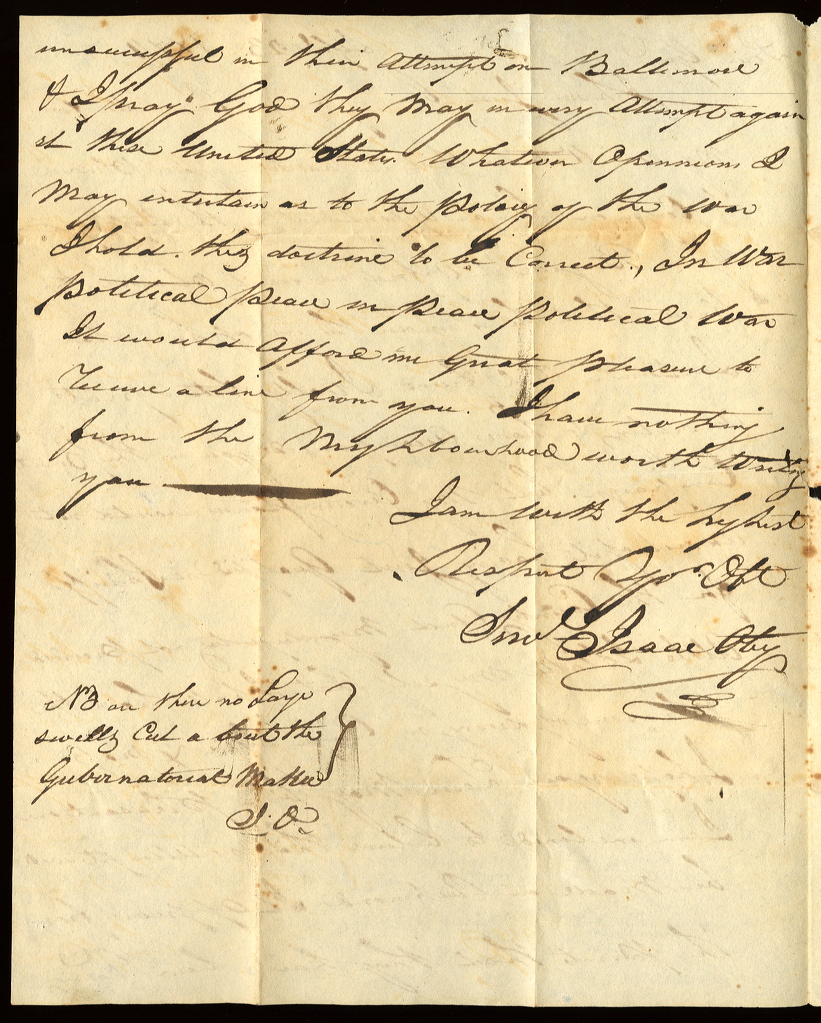 unsucessful in their Attempt on Baltimore
& I pray God they May in every Attempt again
st these United States. Whatever Openions I
May entertain as to the Policy of the War
I hold this doctrine to be Correct., In War
Political Peace in Peace Political War
It would Afford me Great pleasure to
receive a line from you. I have nothing
from the Neighbourhood worth writing
you
I am with the highest
Respect Yor Obt
Servt Isaac Oty
NB are there no Large
swells Cut a bout the
Gubernatorial
I. O.